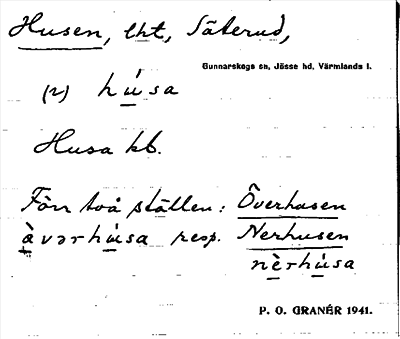 Husen, lht, Säterud,
Gunnarskogs sn, Jösse hd, Värmlands l.
(r) hù̲sa
Husa kb.
Förr två ställen: Överhusen
à̲vərhù̲sa resp. Nerhusen
nè̲rhù̲sa
P. O. GRANÉR 1941.